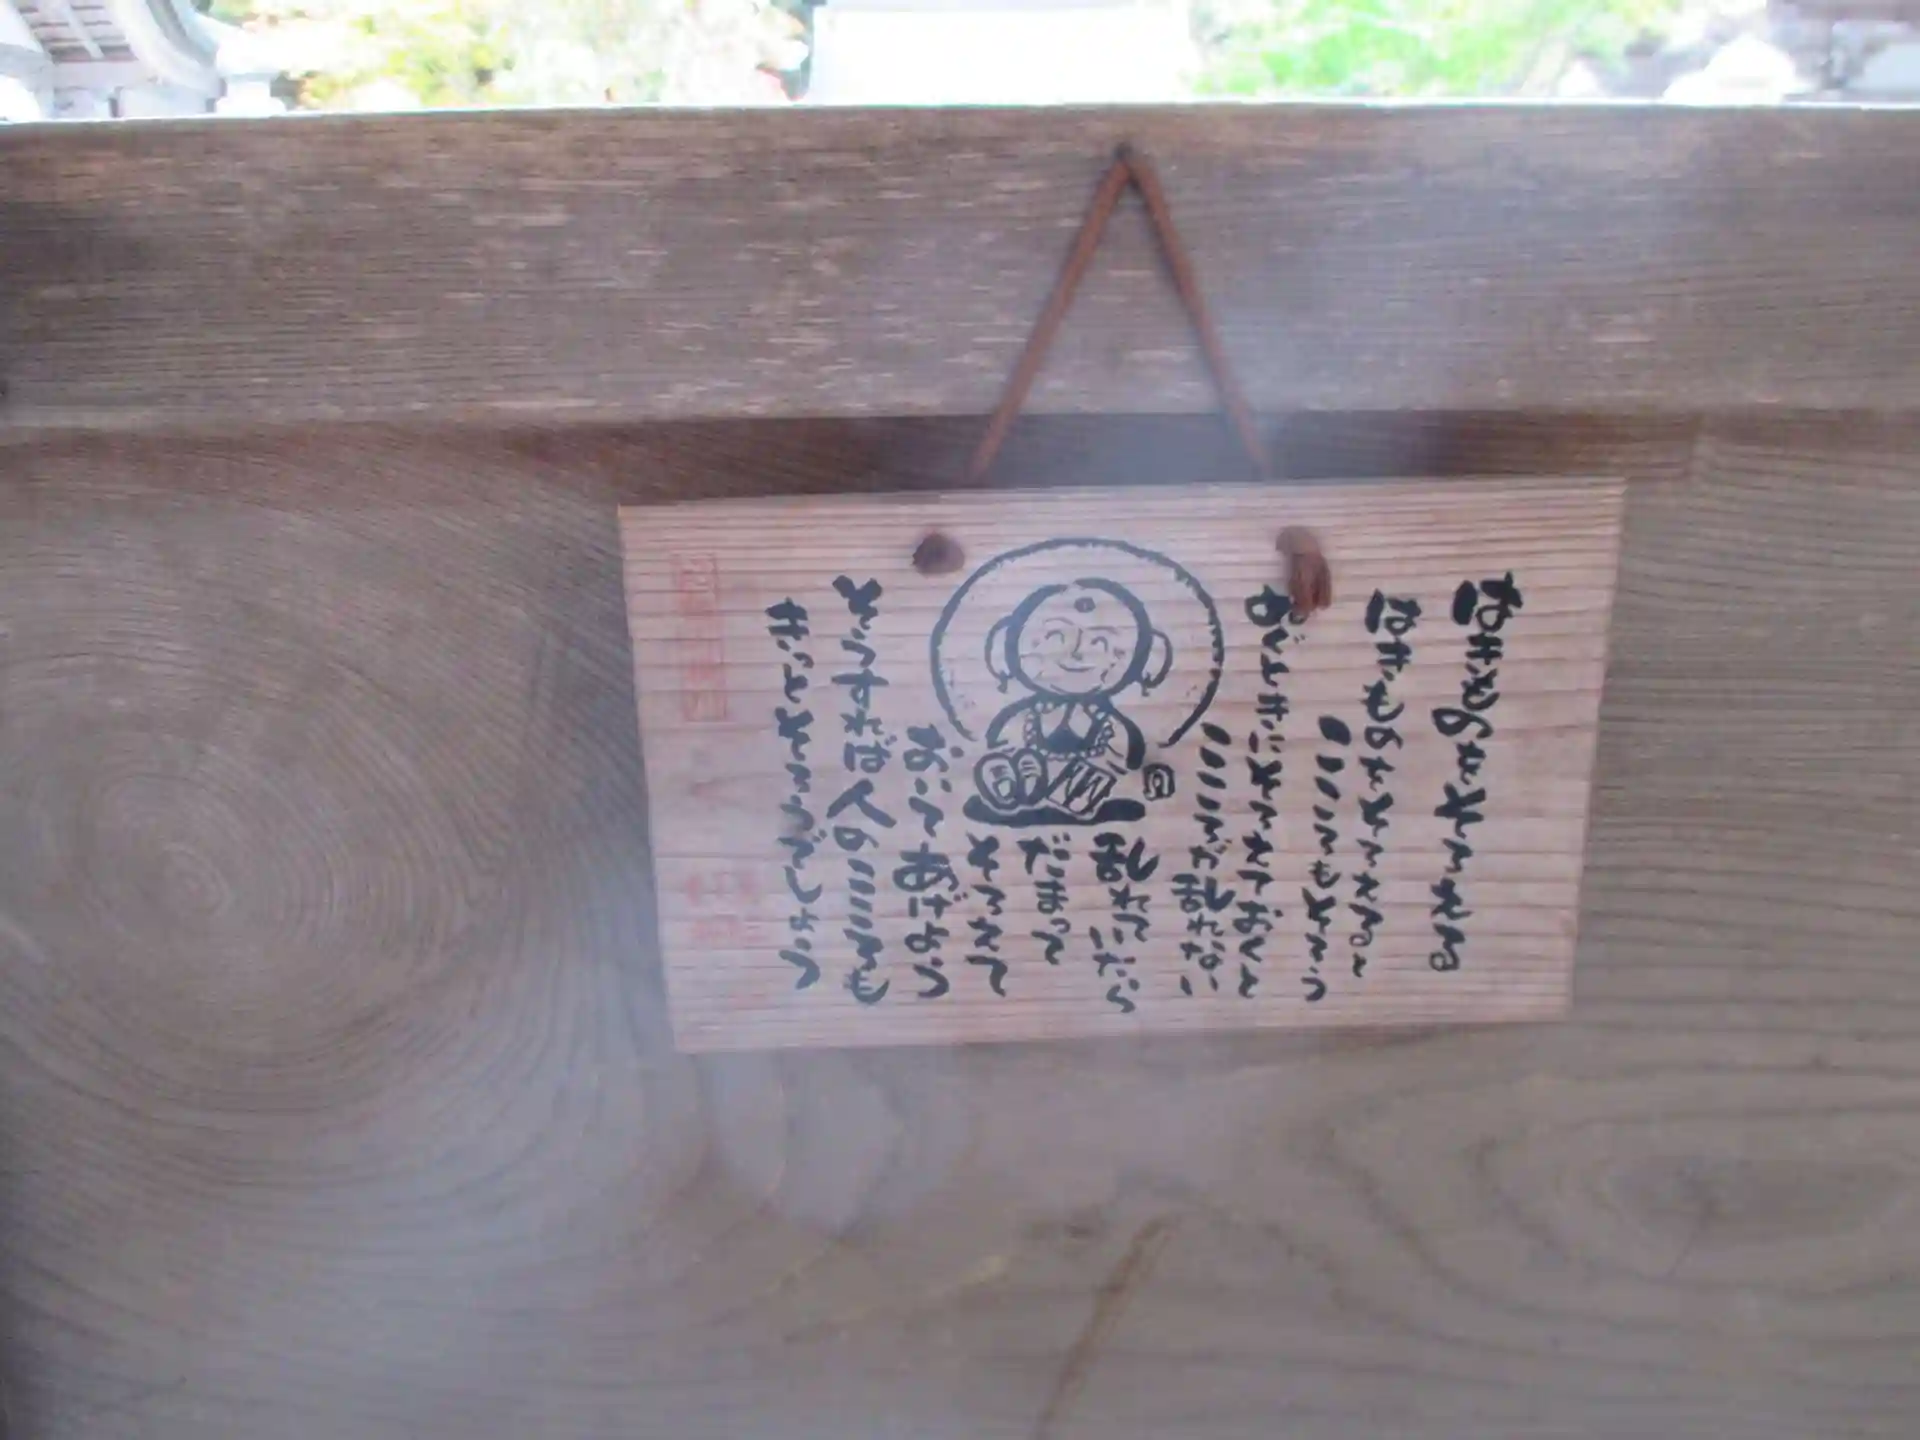 はきものをそろえる
はきものをそろえると
心もそろう
ぬぐときにそろえておくと
心が乱れない
乱れていたら
だまって
そろえて
おいてあげよう
そうすれば人の心も
きっとそろうでしょう